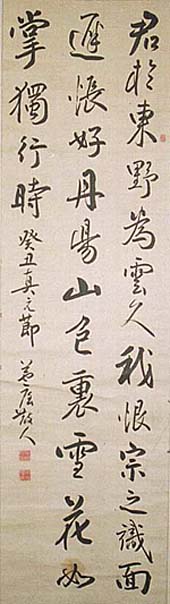 君於東野為雲久我恨宗之識面
遲悵好丹陽山色裏雪花如
掌獨行時 癸丑真元節 散人